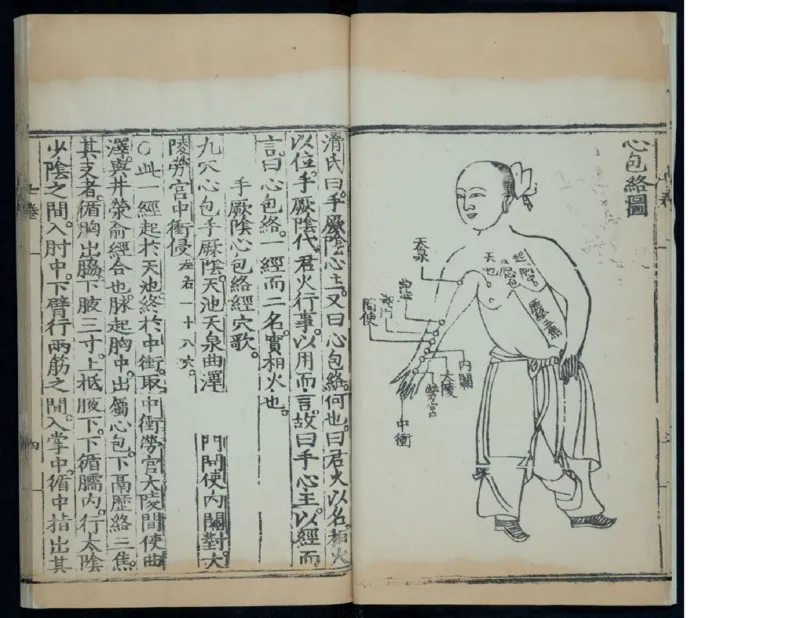 心包絡圖
天泉
天池
起胸中
屬心包
歷絡三焦
曲澤
郄門
間使
內關
大陵
勞宮
中衝
滑氏曰。手厥陰心主。又曰心包絡。何也。曰君火以名。相火
以位。手厥陰代君火行事。以用而言。故曰手心主。以經而
言。曰心包絡。一經而二名。實相火也。
手厥陰心包絡經穴歌。
九穴心包手厥陰。天池天泉曲澤
門間使內關對。大
陵勞宮中衝侵 左右一十八穴。
○此一經起於天池。終於中衝。取中衝勞宮大陵間使曲
澤。與井滎俞經合也。脉起胸中。出屬心包。下膈。歷絡三焦。
其支者。循胸出脇。下腋三寸。上抵腋下。下循臑內。行太陰
少陰之間。入肘中。下臂行兩筋之間。入掌中。循中指出其
七卷
四